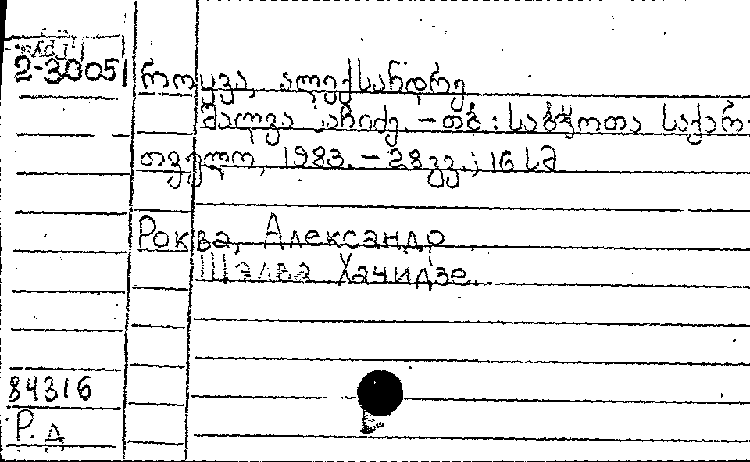 2-30051
როყვა, ალექსანდრე
შალვა აჩიძე. – თბ : საბჭოთა საქარ-
თველო, 1983. – 28 გვ.; 16 სმ
Роква, Александр
Шалва Хачидзе.
84316
Р. д